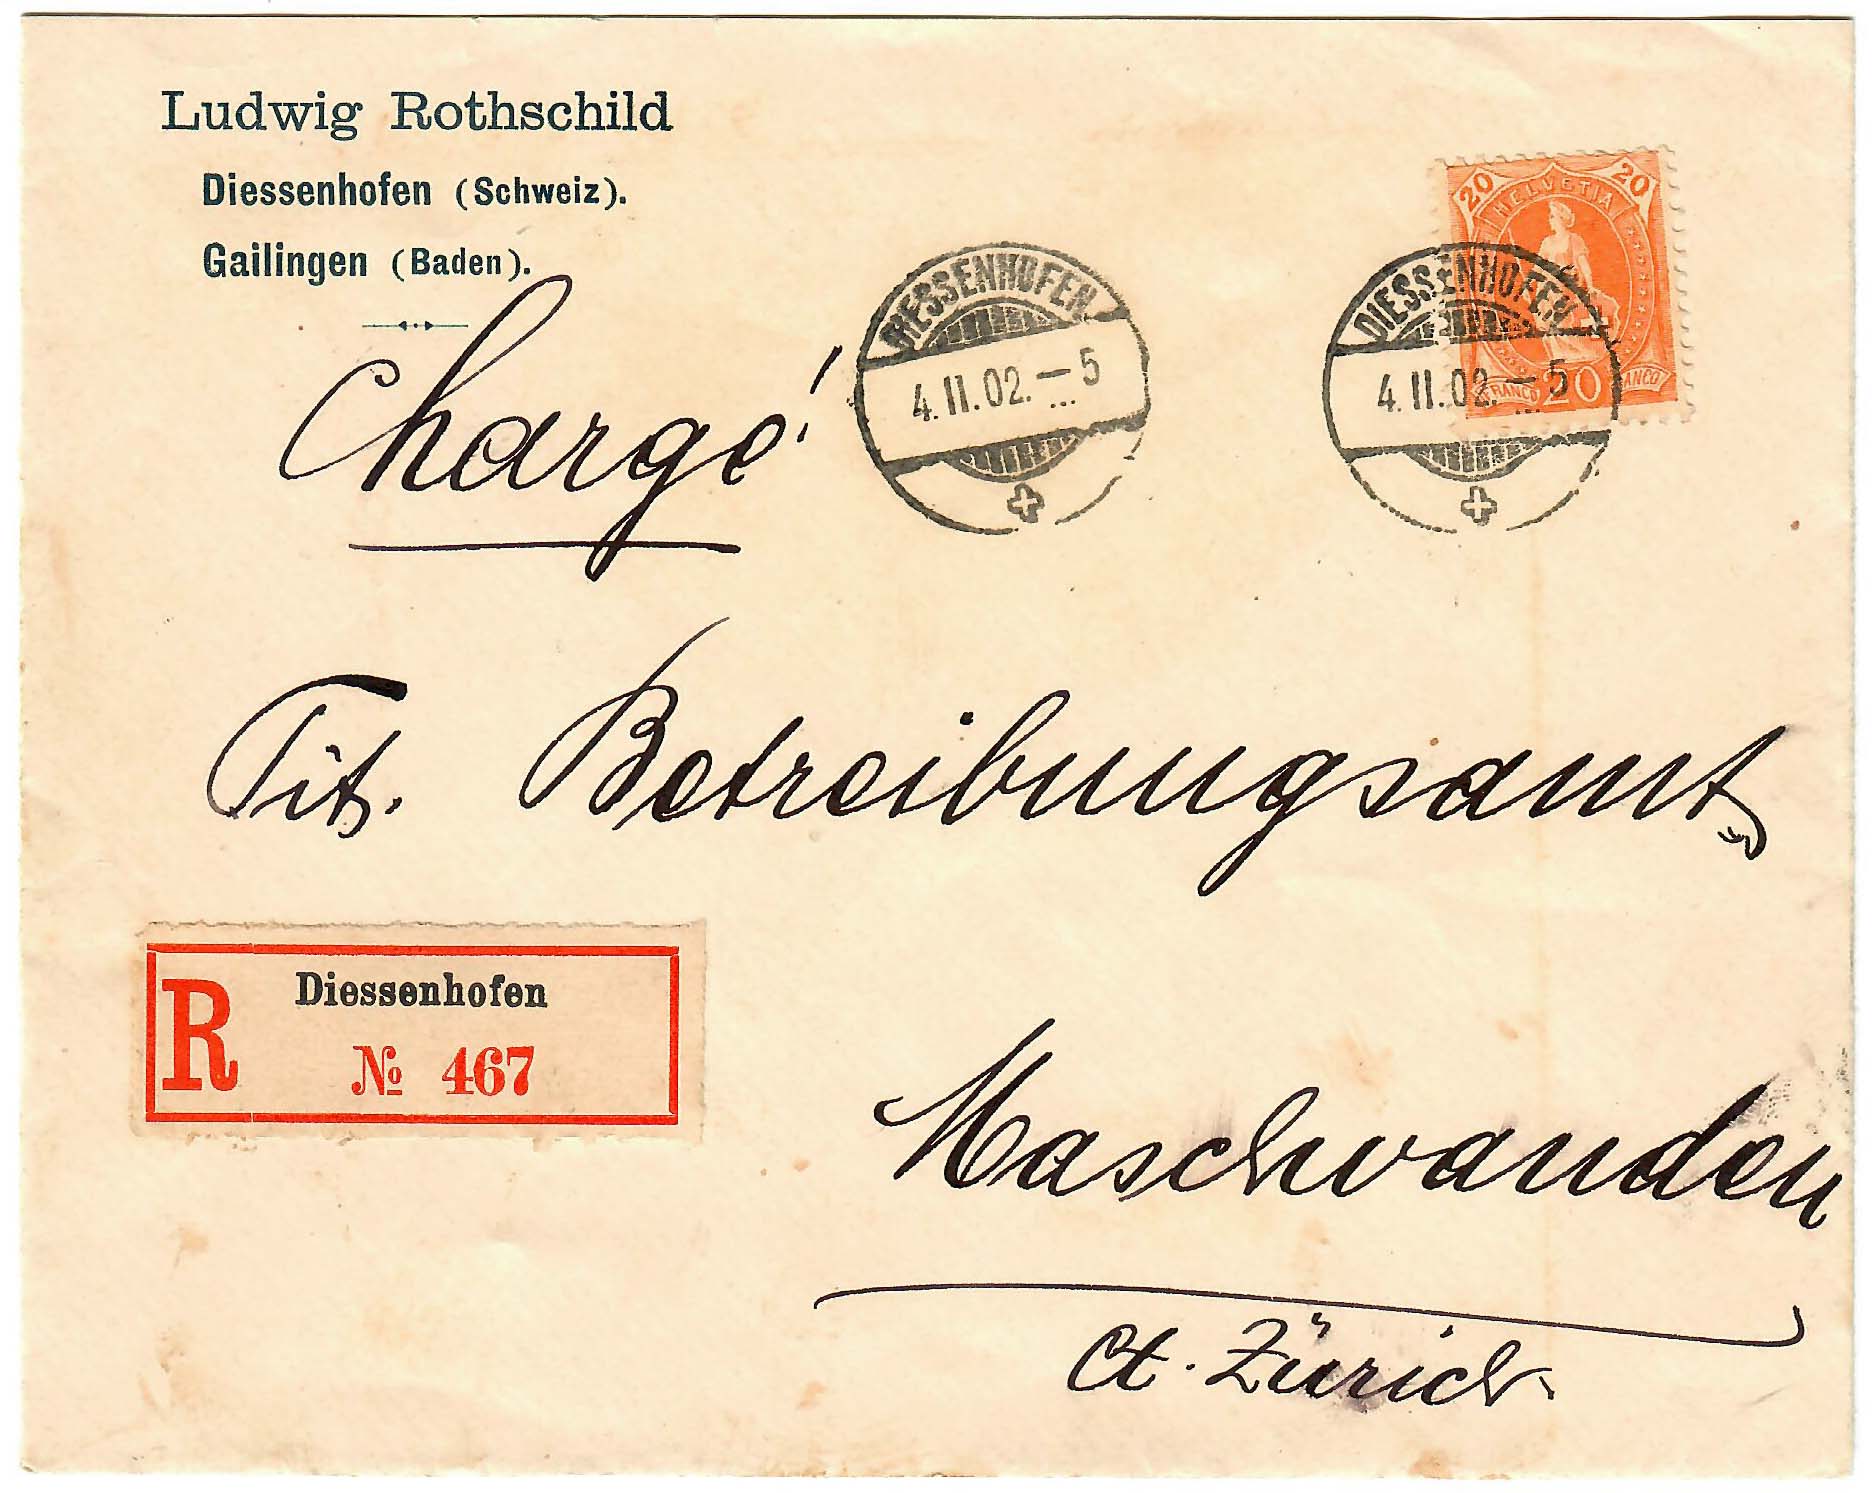 Ludwig Rothschild
Diessenhofen (Schweiz).
Gailingen (Baden).
Chargé!
20 HELVETIA 20
FRANCO 20 FRANCO
DIESSENHOFEN
4.II.02.—5
DIESSENHOFEN
4.II.02.—5
Tit. Betreibungsamt
R Diessenhofen
№ 467
Maschwanden
Ct. Zürich.